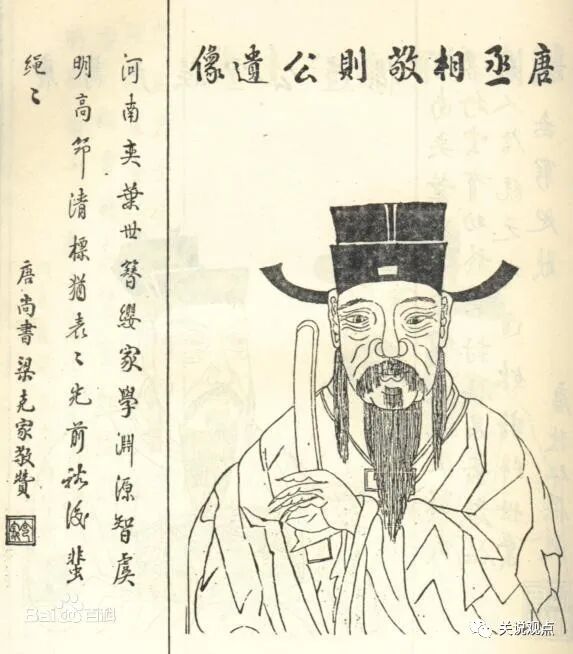 唐丞相敬則公遺像
河南奕葉世簪纓家學淵源智虞
明高節清標猶表〻先前裕後蜚
繩〻
唐尚書梁克家敬贊
Baidu百科
关说观点